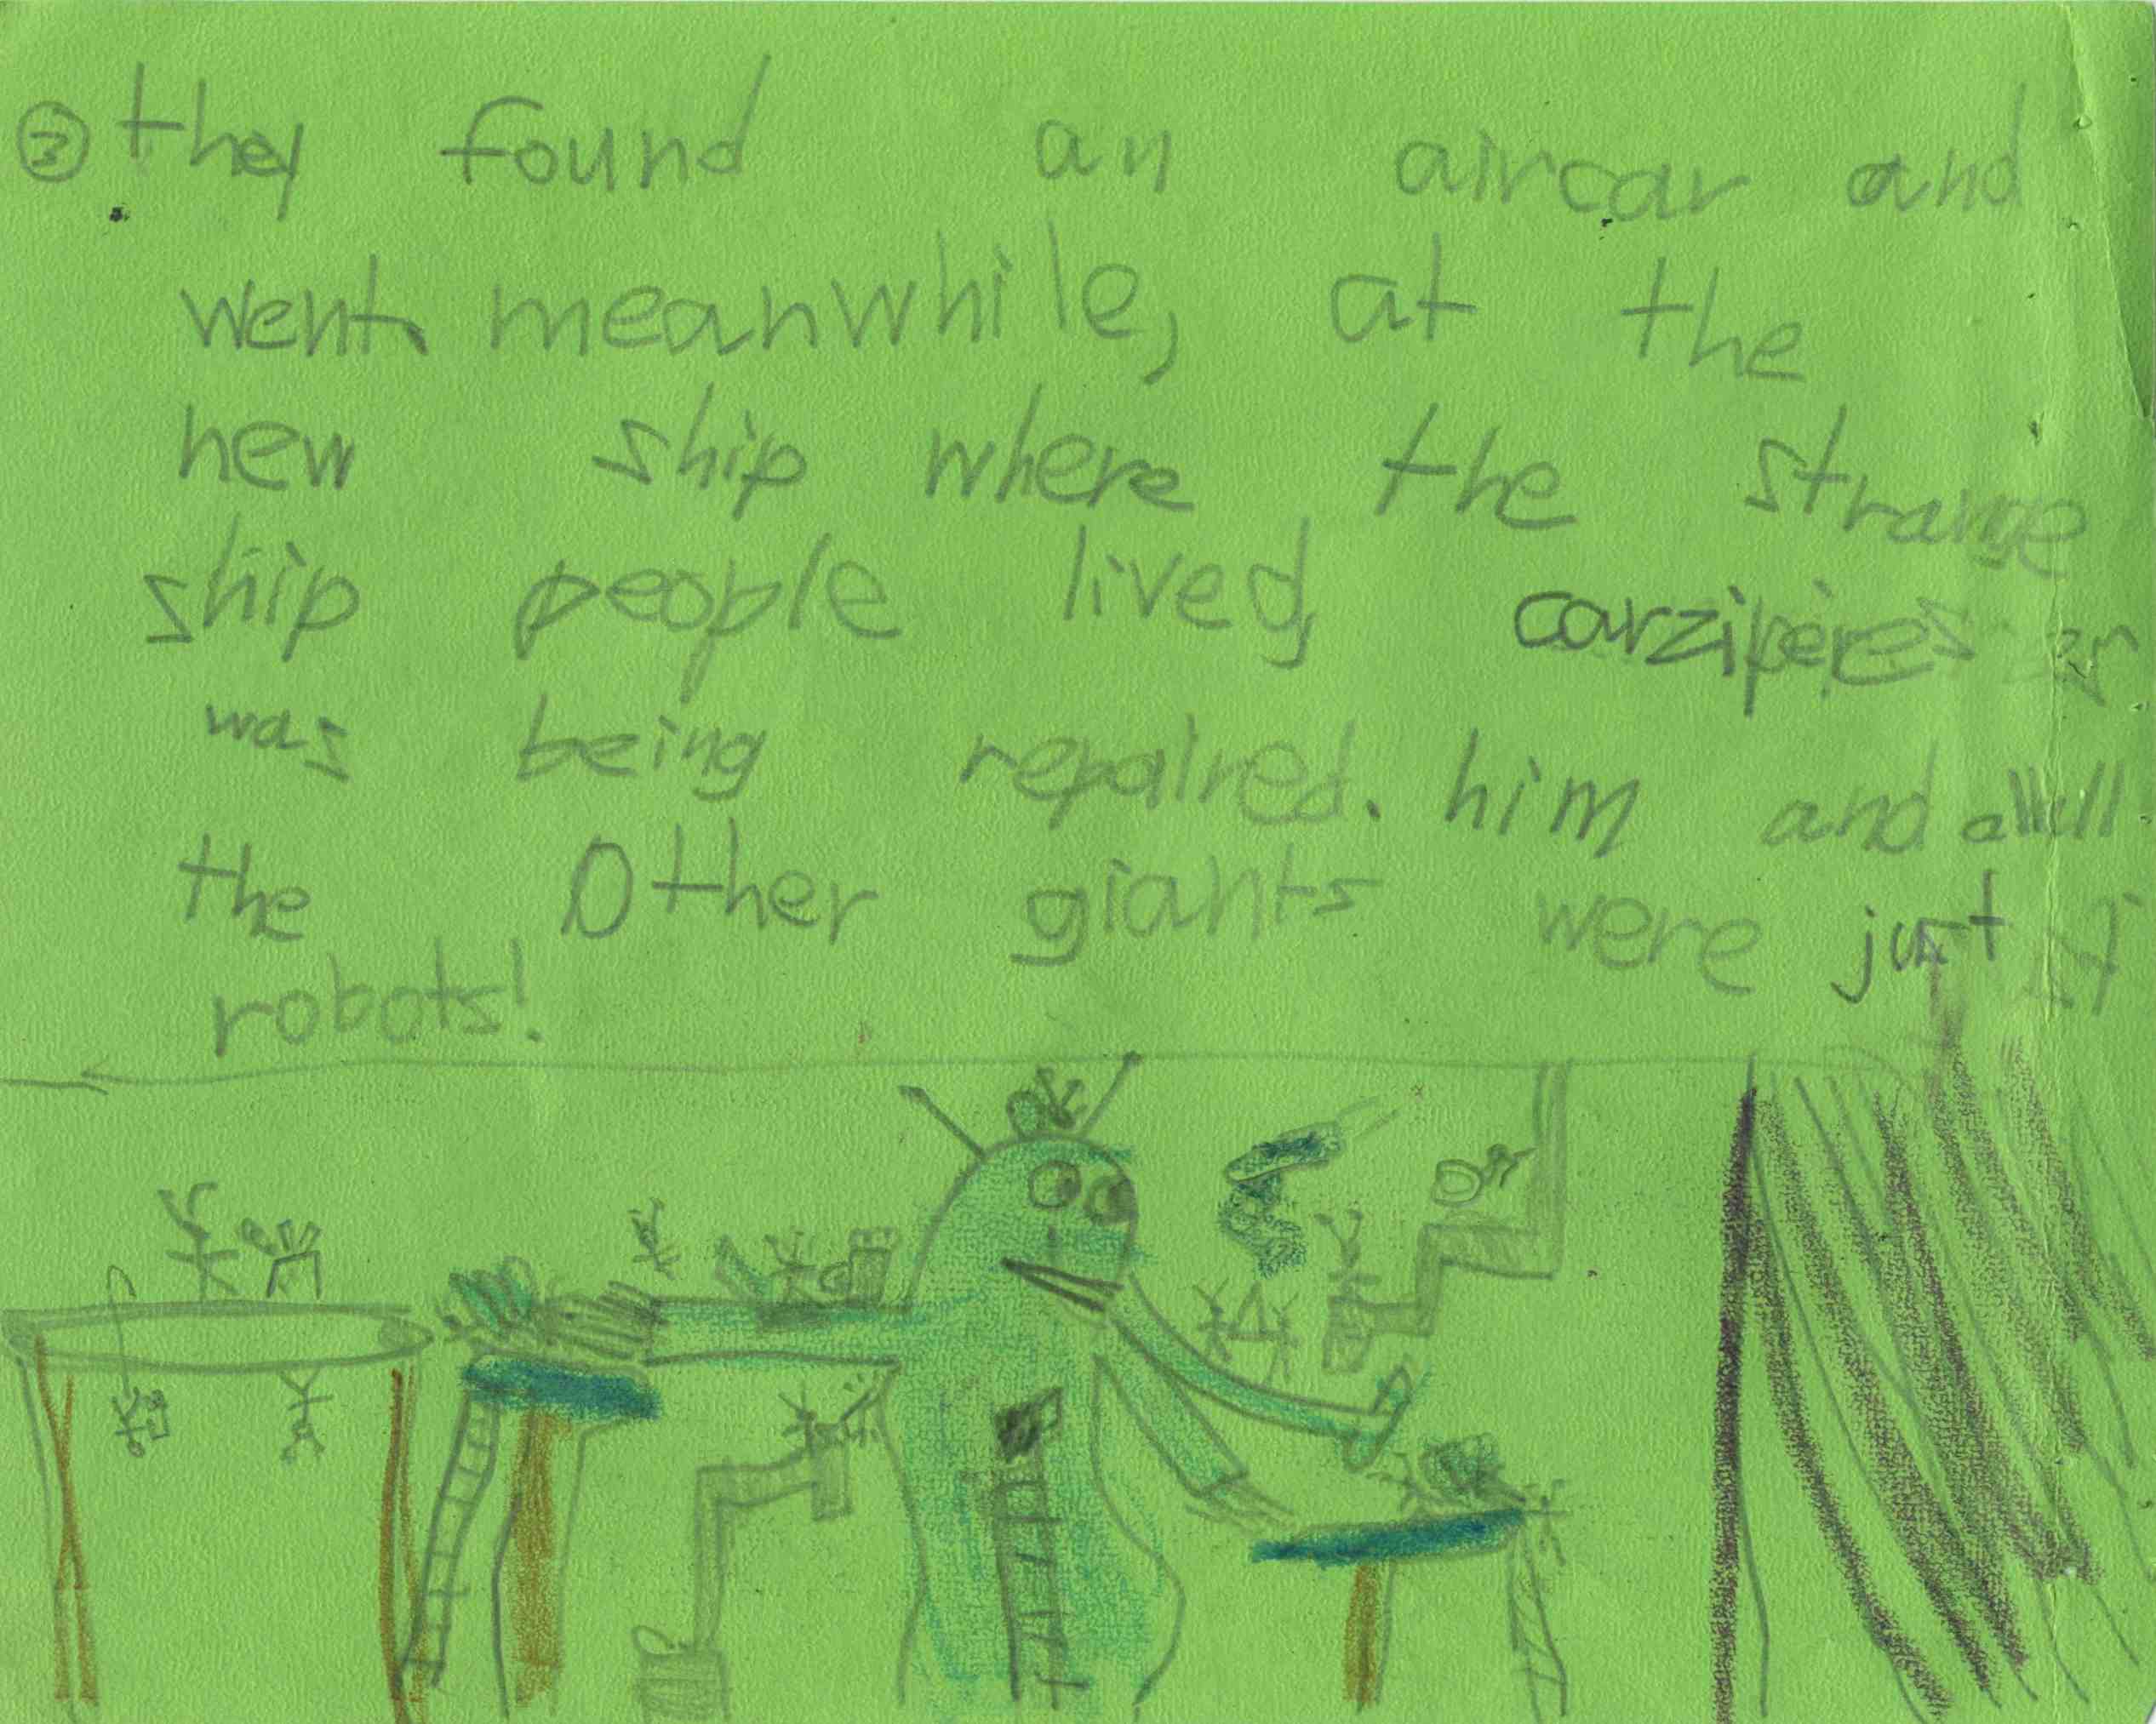 ③ they found an aircar and
went. meanwhile, at the
new ship where the strange
ship people lived,
was being repaired. him and all
the other giants were just
robots!